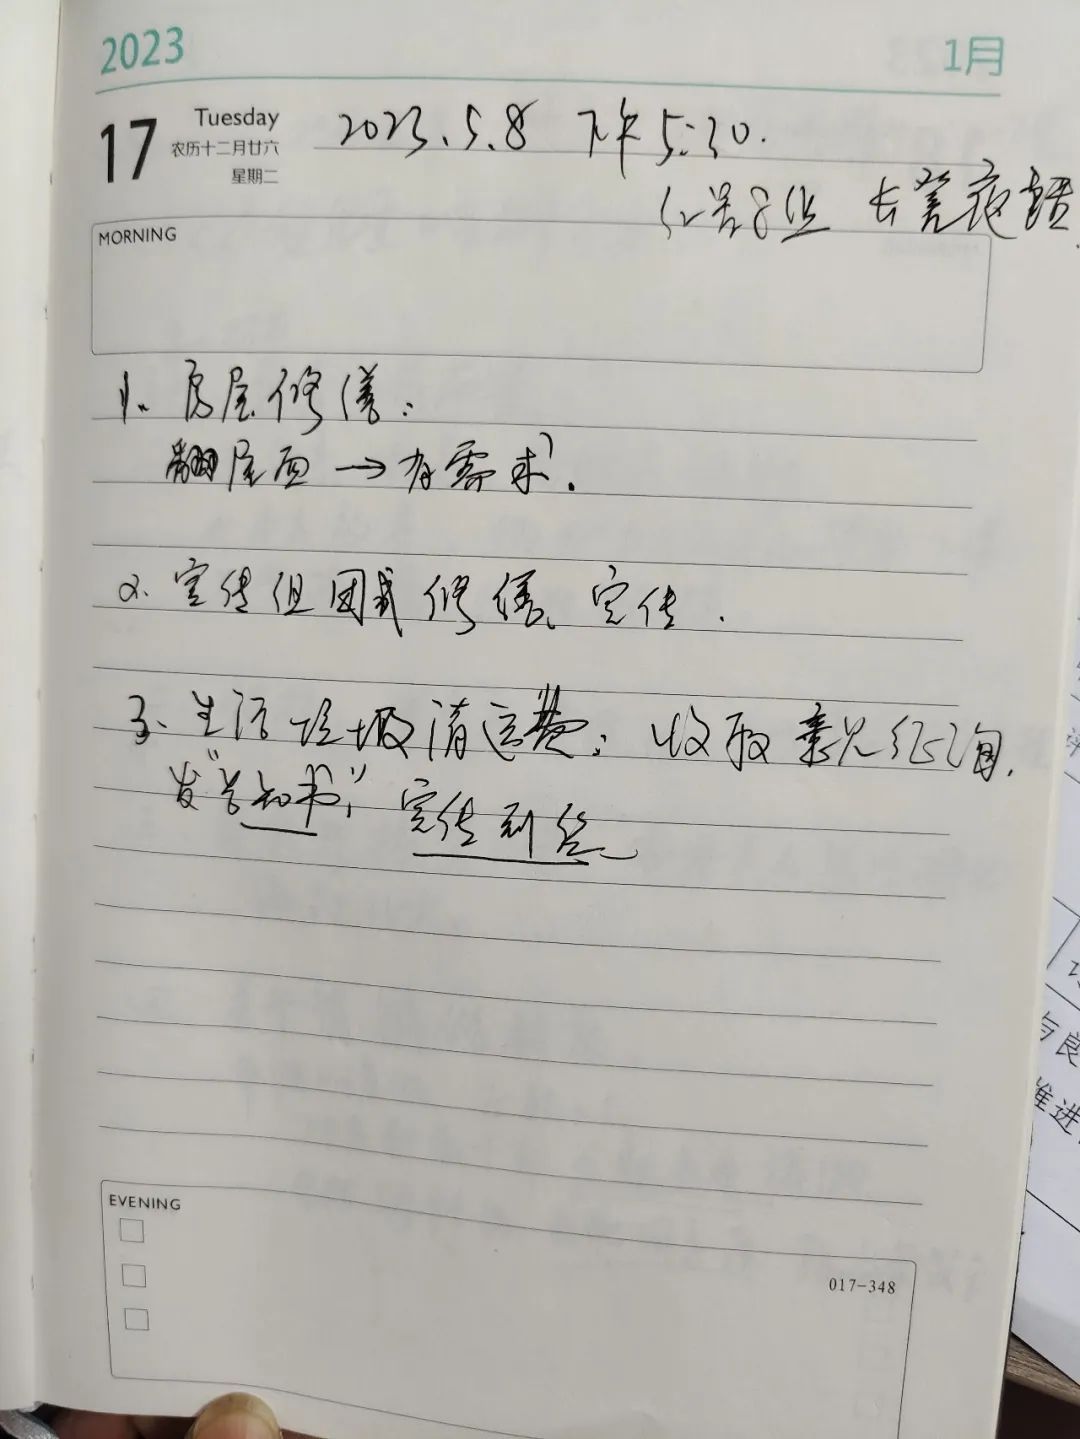 2023
1月
17
Tuesday
农历十二月廿六
星期二
2023.5.8 下午5:30.
组 长凳夜话
MORNING
1. 房屋修缮:
翻屋面→有需求.
2. 宣传组团式修缮、宣传.
3. 生活垃圾清运费: 收取意见征询.
发"告知书", 宣传到位
EVENING
017-348
与良
推进